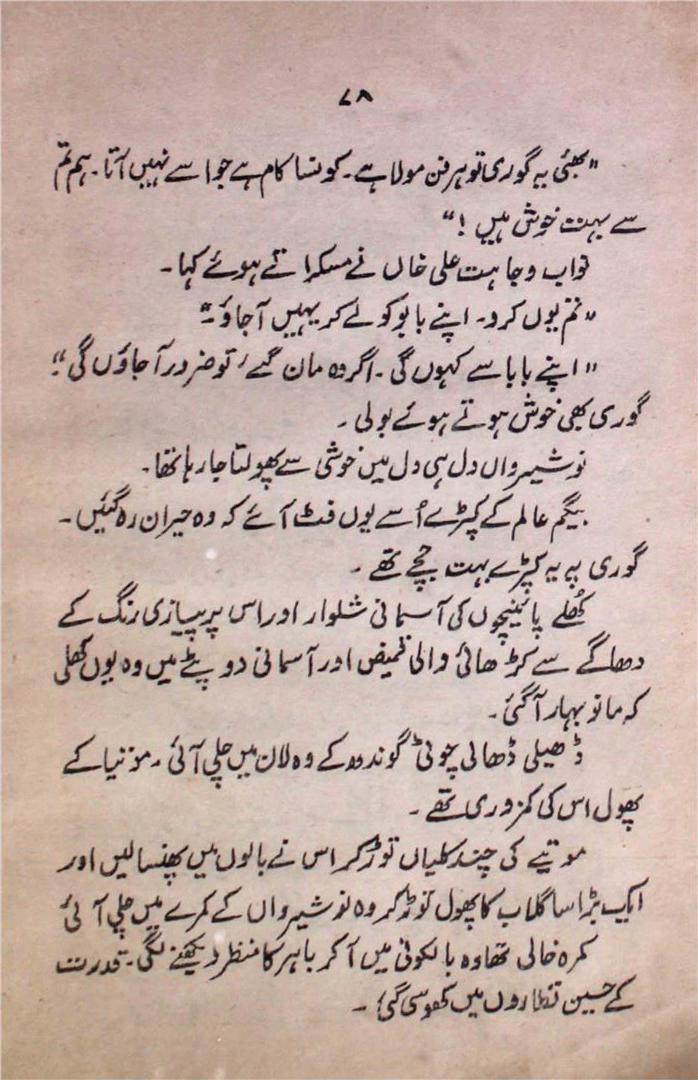 ۷۸
"بھئی یہ گوری تو ہر فن مولا ہے۔ کونسا کام ہے جو اسے نہیں آتا۔ ہم تم
سے بہت خوش ہیں !"
نواب وجاہت علی خاں نے مسکراتے ہوئے کہا۔
"تم یوں کرو۔ اپنے بابو کو لے کر یہیں آجاؤ۔"
"اپنے بابا سے کہوں گی۔ اگر وہ مان گئے، تو ضرور آجاؤں گی"۔
گوری بھی خوش ہوتے ہوئے بولی۔
نوشیرواں دل ہی دل میں خوشی سے پھولتا جا رہا تھا۔
بیگم عالم کے کپڑے اُسے یوں فٹ آئے کہ وہ حیران رہ گئیں۔
گوری پہ یہ کپڑے بہت جچے تھے۔
کُھلے پائینچوں کی آسمانی شلوار اور اس پر پیازی رنگ کے
دھاگے سے کڑھائی والی قمیض اور آسمانی دوپٹے میں وہ یوں کھلی
کہ مانو بہار آگئی۔
ڈھیلی ڈھالی چوٹی گوندھ کے وہ لان میں چلی آئی۔ موتیا کے
پھول اس کی کمزوری تھے۔
موتیے کی چند کلیاں توڑ کر اس نے بالوں میں پھنسا لیں اور
ایک بڑا سا گلاب کا پھول توڑ کر وہ نوشیرواں کے کمرے میں چلی آئی
کمرہ خالی تھا وہ بالکونی میں آ کر باہر کا منظر دیکھنے لگی۔ قدرت
کے حسین نظاروں میں کھو سی گئی۔